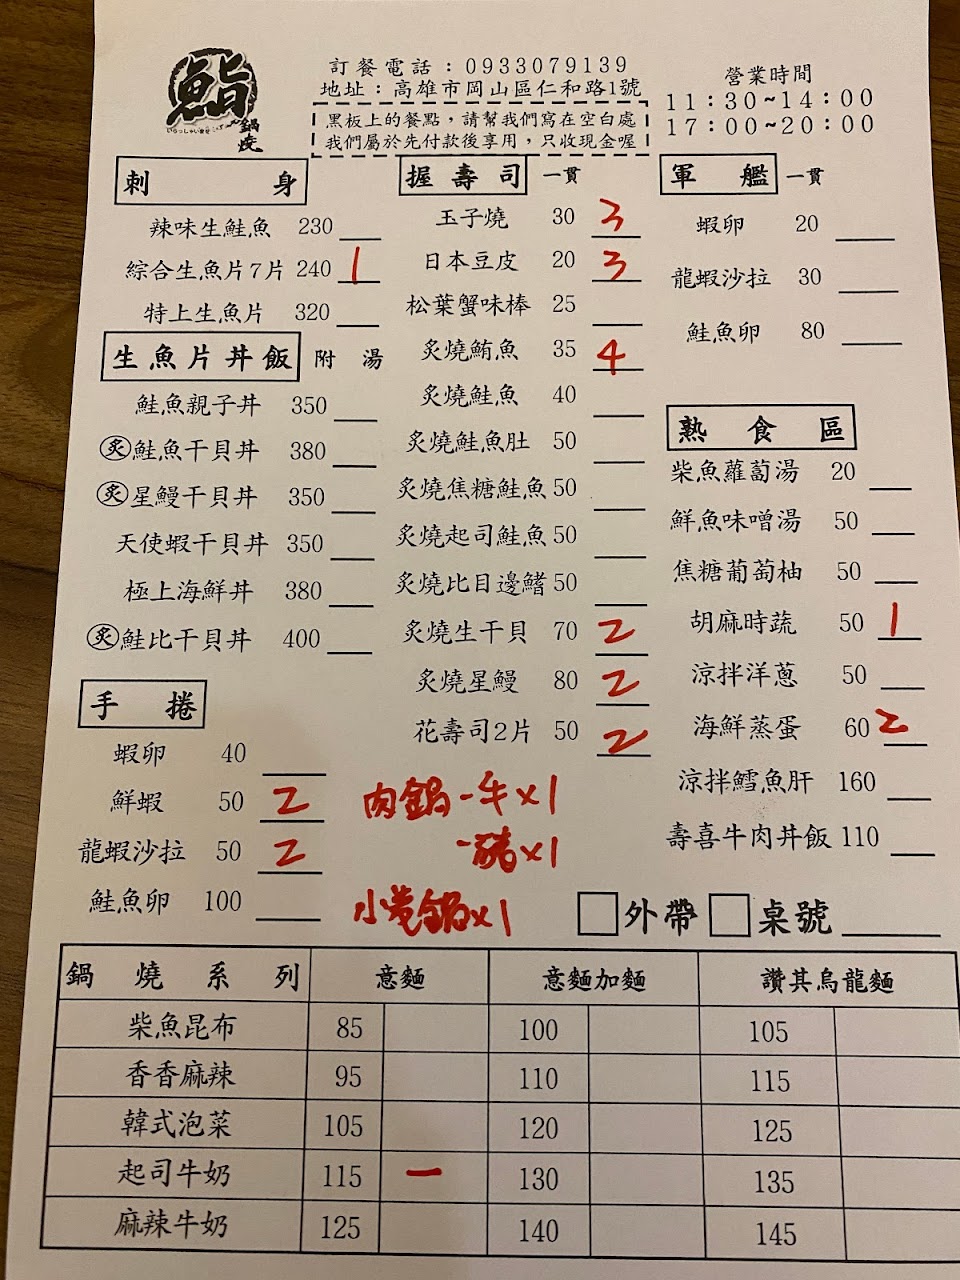 鮨
いらっしゃいませ
鍋燒
訂餐電話：0933079139
地址：高雄市岡山區仁和路1號
黑板上的餐點，請幫我們寫在空白處
我們屬於先付款後享用，只收現金喔
營業時間
11：30~14：00
17：00~20：00
刺身
辣味生鮭魚 230
綜合生魚片7片 240 1
特上生魚片 320
生魚片丼飯 附湯
鮭魚親子丼 350
炙鮭魚干貝丼 380
炙星鰻干貝丼 350
天使蝦干貝丼 350
極上海鮮丼 380
炙鮭比干貝丼 400
手捲
蝦卵 40
鮮蝦 50 2
龍蝦沙拉 50 2
鮭魚卵 100
握壽司 一貫
玉子燒 30 3
日本豆皮 20 3
松葉蟹味棒 25
炙燒鮪魚 35 4
炙燒鮭魚 40
炙燒鮭魚肚 50
炙燒焦糖鮭魚 50
炙燒起司鮭魚 50
炙燒比目邊鰭 50
炙燒生干貝 70 2
炙燒星鰻 80 2
花壽司2片 50 2
肉鍋-牛x1
-豬x1
小卷鍋x1
軍艦 一貫
蝦卵 20
龍蝦沙拉 30
鮭魚卵 80
熟食區
柴魚蘿蔔湯 20
鮮魚味噌湯 50
焦糖葡萄柚 50
胡麻時蔬 50 1
涼拌洋蔥 50
海鮮蒸蛋 60 2
涼拌鱈魚肝 160
壽喜牛肉丼飯 110
外帶 桌號
鍋燒系列 意麵 意麵加麵 讚其烏龍麵
柴魚昆布 85 100 105
香香麻辣 95 110 115
韓式泡菜 105 120 125
起司牛奶 115 一 130 135
麻辣牛奶 125 140 145